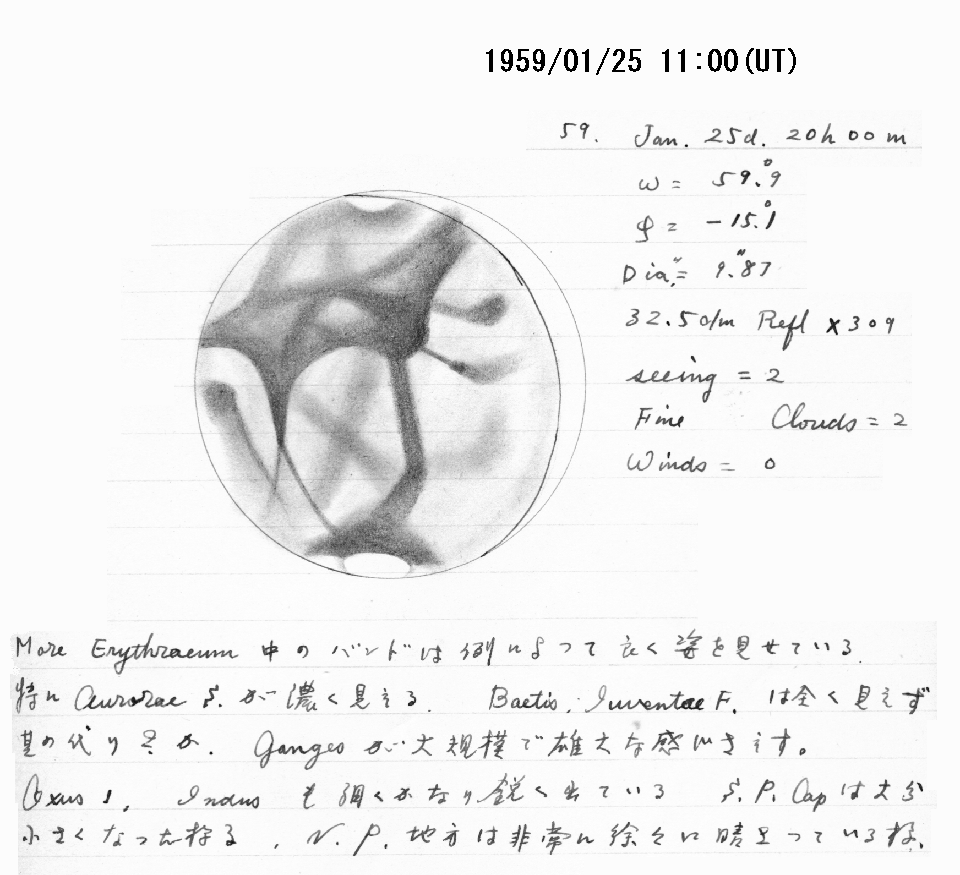 1959/01/25 11:00(UT)
59. Jan. 25d. 20h 00m
ω = 59.°9
φ = -15.°1
Dia. = 9."87
32.5c/m Refl x309
seeing = 2
Fine Clouds = 2
Winds = 0
Mare Erythraeum 中のバンドは例によって良く姿を見せている.
特に Aurorae S. が濃く見える. Baetis, Juventae F. は全く見えず
其の代り, Ganges が大規模で雄大な感じさえす。
Oxus, Indus も細くかなり鋭く出ている S.P. Cap は大分
小さくなった様る, N.P. 地方は非常に徐々に晴れ上っている様.